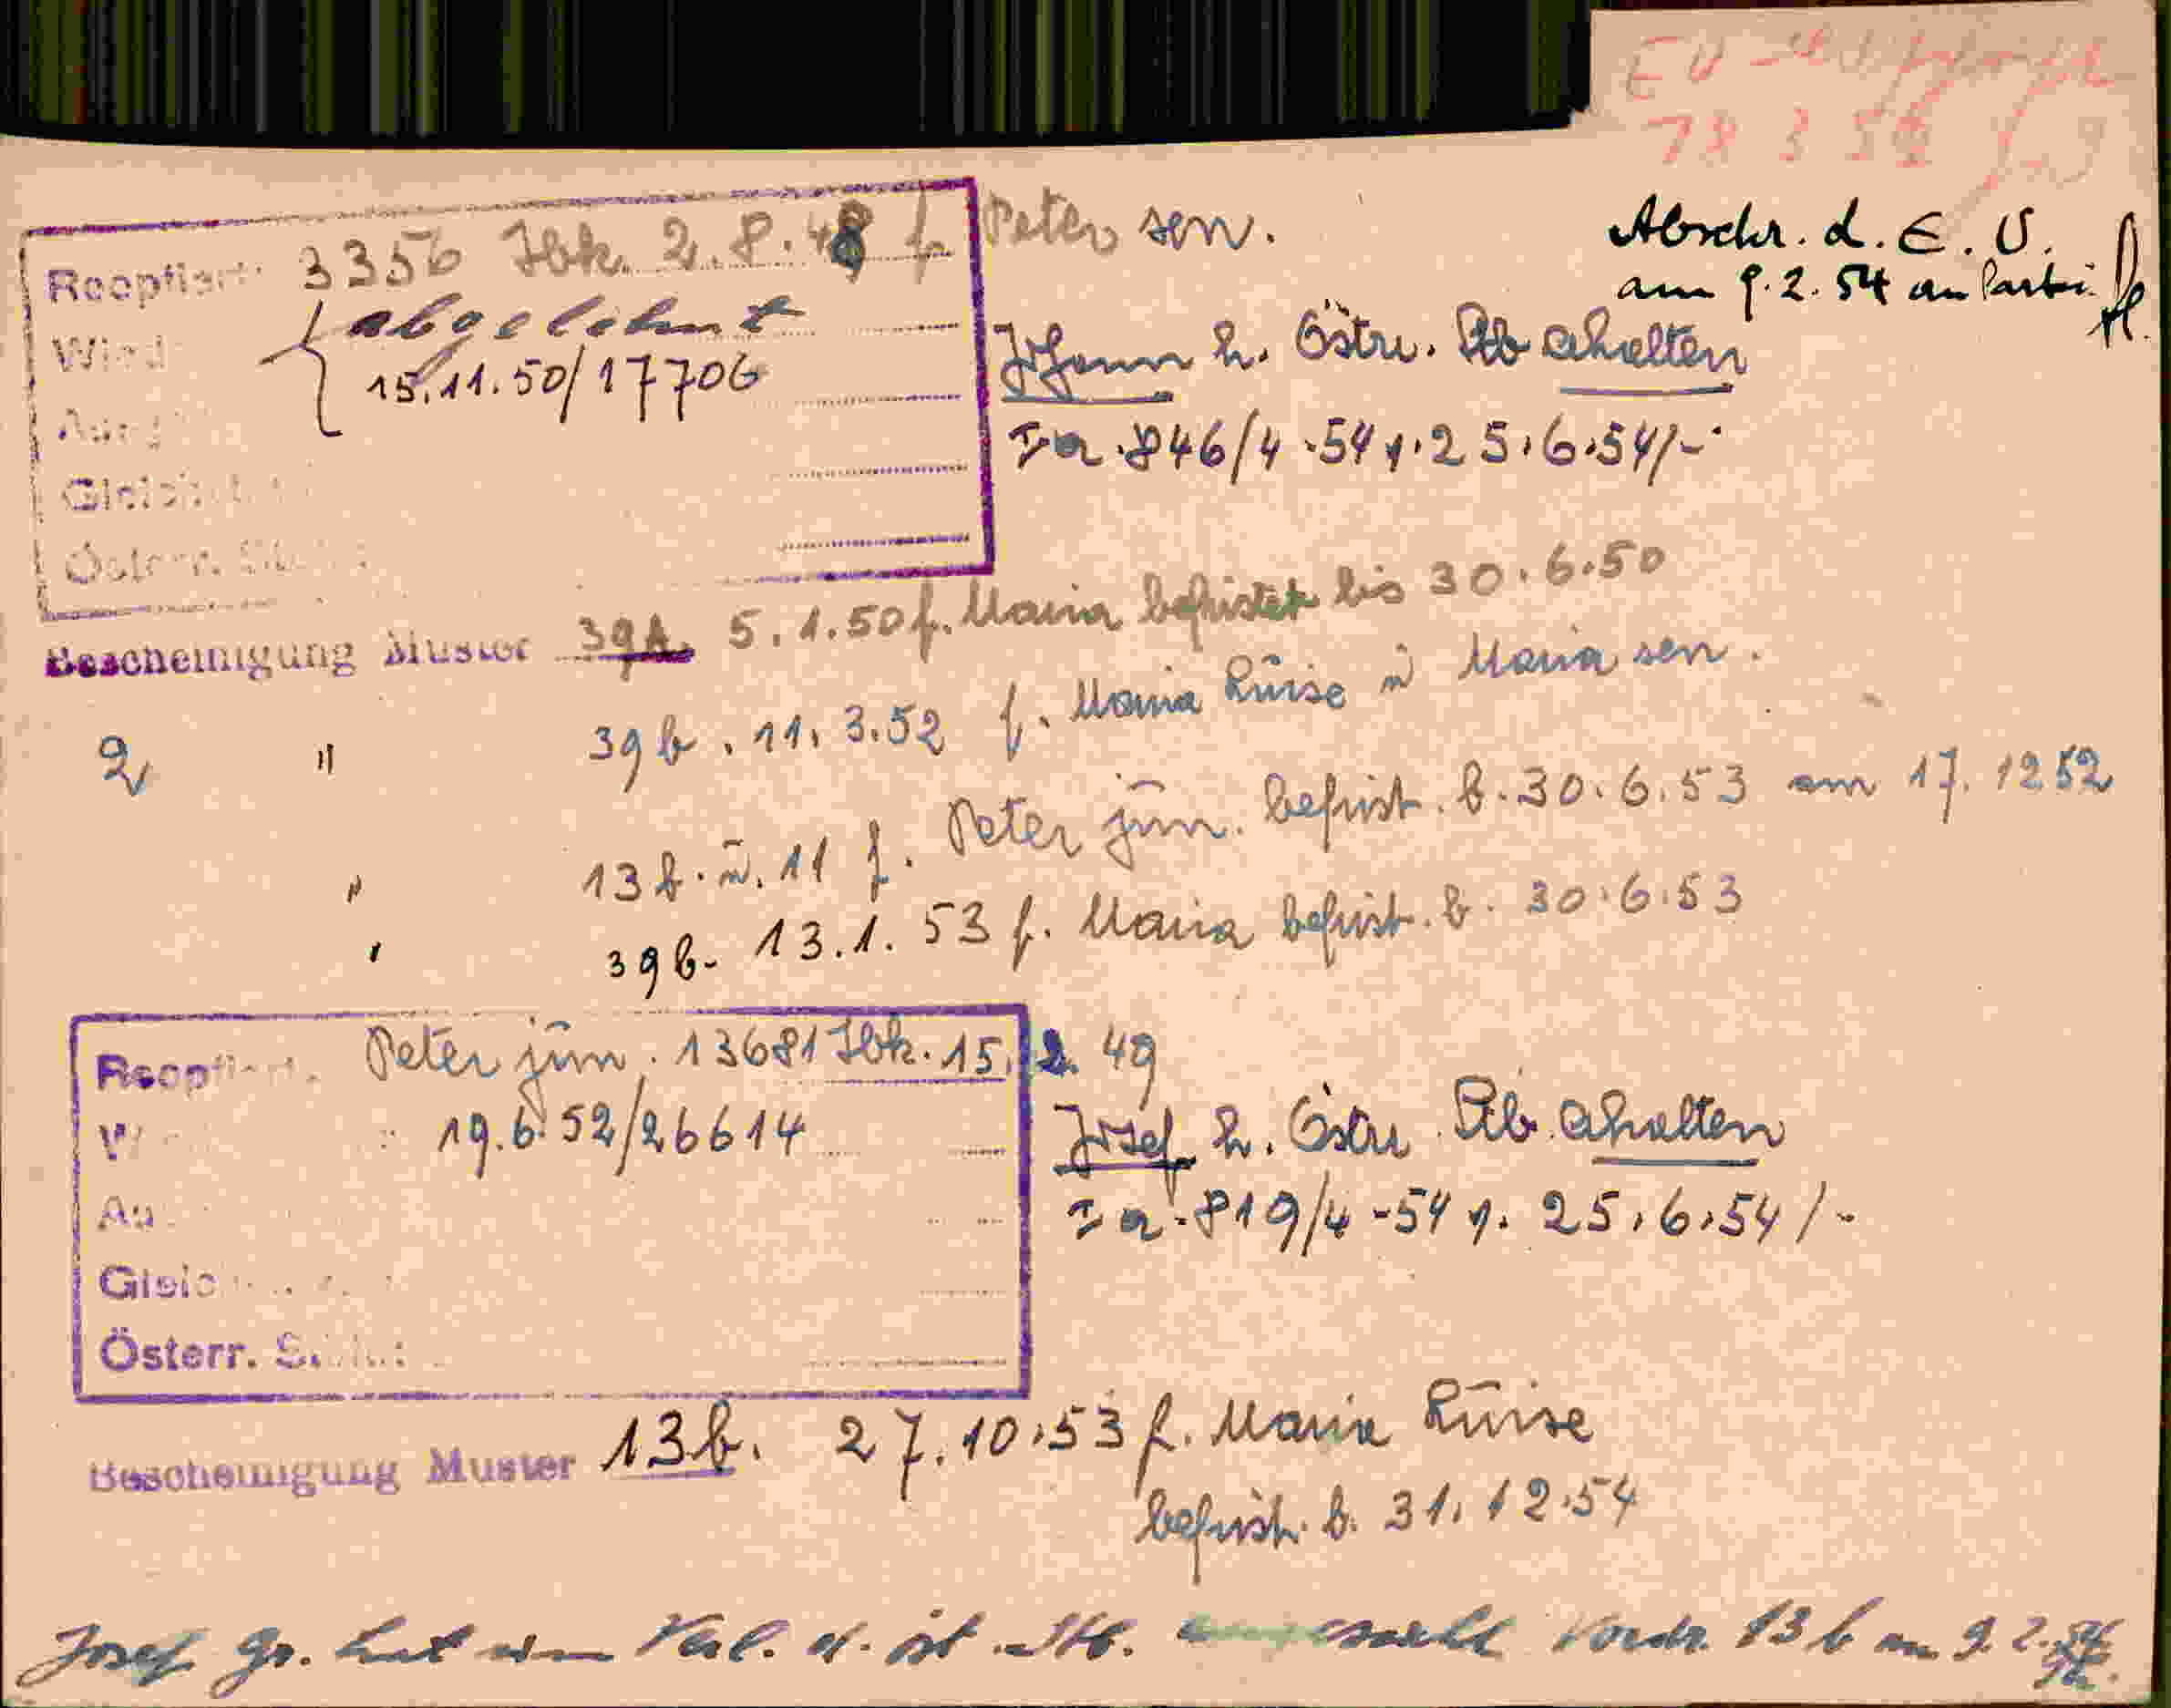 78 3 58
Abschr. d. E. V.
am 9.2.54 an Partei
Reoptiert: 3356 Ibk. 2.8.48 f. Peter sen.
abgelehnt
15.11.50/17706
Johann h. Östr. Stb erhalten
Ia-846/4-54 v. 25.6.54/-
Österr.
Bescheinigung Muster 39A. 5.1.50 f. Maria befristet bis 30.6.50
2 " 39b. 11.3.52 f. Maria Luise u Maria sen.
" 13b. u. 11 f. Peter jun. befrist. b. 30.6.53 am 17.12 52
" 39b- 13.1.53 f. Maria befrist. b. 30.6.53
Reoptiert. Peter jun. 13681 Ibk. 15. 2. 49
19.6.52/26614
Josef h. Östr. Stb. erhalten
Ia-819/4-54 v. 25.6.54/-
Österr.
Bescheinigung Muster 13b. 27.10.53 f. Maria Luise
befrist. b. 31.12.54
Josef Gr. hat um Verl. d. öst. Stb. Vordr. 13b am 9.2.54